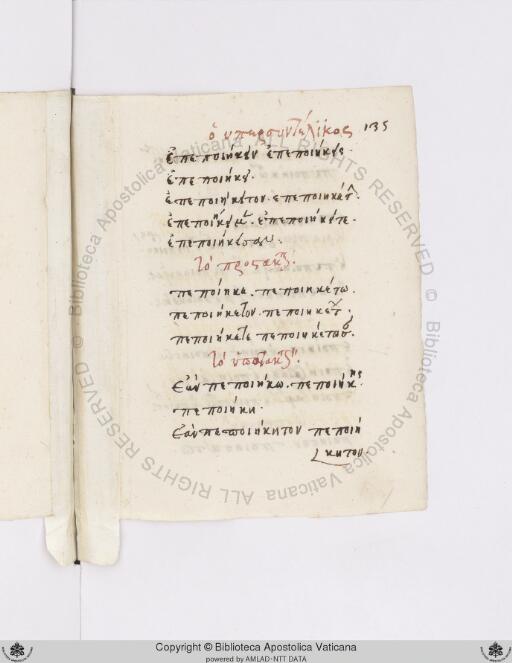 ὁ ὑπερσυντέλικος 135
ἐπεποιήκειν ἐπεποιήκεις.
ἐπεποιήκει.
ἐπεποιήκειτον. ἐπεποιηκείτ
ἐπεποιήκειμ. ἐπεποιήκειτε.
ἐπεποιήκεισαν.
το προστακτ.
πεποίηκε. πεποιηκέτω.
πεποιήκετον. πεποιηκέτ
πεποιήκετε πεποιηκέτωσ.
το ὑποτακτ.
Εαν πεποιήκω. πεποιήκης
πεποιήκη.
Εαν πεποιήκητον πεποιή
κητον.
Copyright © Biblioteca Apostolica Vaticana
powered by AMLAD-NTT DATA
© Biblioteca Apostolica Vaticana ALL RIGHTS RESERVED